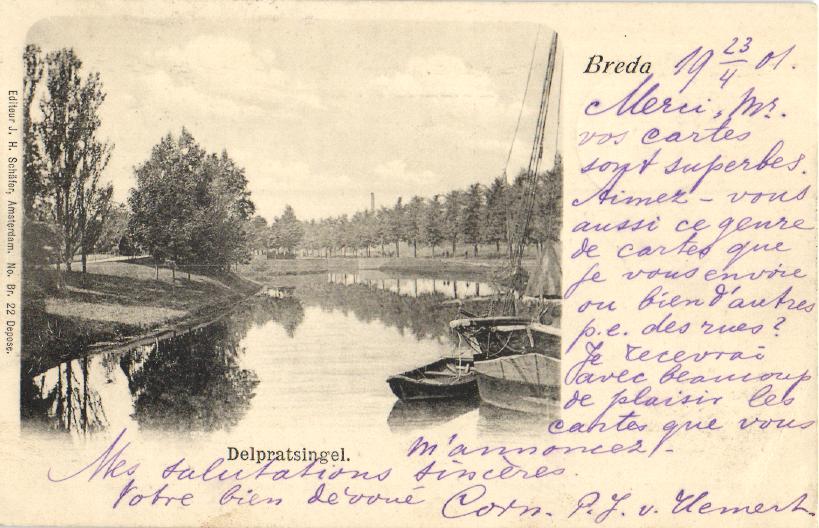 Breda 19 23/4 01.
Merci, Mr.
vos cartes
sont superbes.
Aimez-vous
aussi ce genre
de cartes que
je vous envoie
ou bien d'autres
p.e. des rues?
Je recevrai
avec beaucoup
de plaisir les
cartes que vous
m'annoncez.
Delpratsingel.
Mes salutations sincères.
Votre bien dévoué Corn. P.J. v. Hemert.
Editeur J. H. Schäfer, Amsterdam. No. Br. 22 Depose.